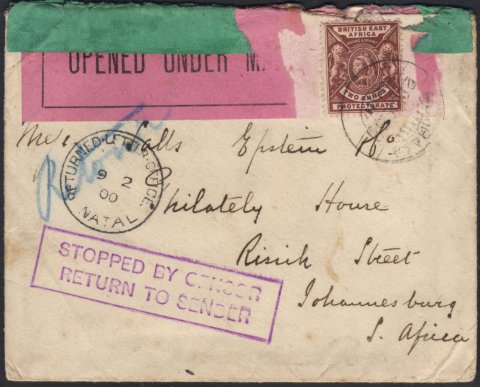 OPENED UNDER M
BRITISH EAST
AFRICA
TWO ANNAS
PROTECTORATE
Epstein
RETURNED LETTER OFFICE
9 2
00
NATAL
Philately House
Risik Street
Johannesburg
S. Africa
STOPPED BY CENSOR
RETURN TO SENDER